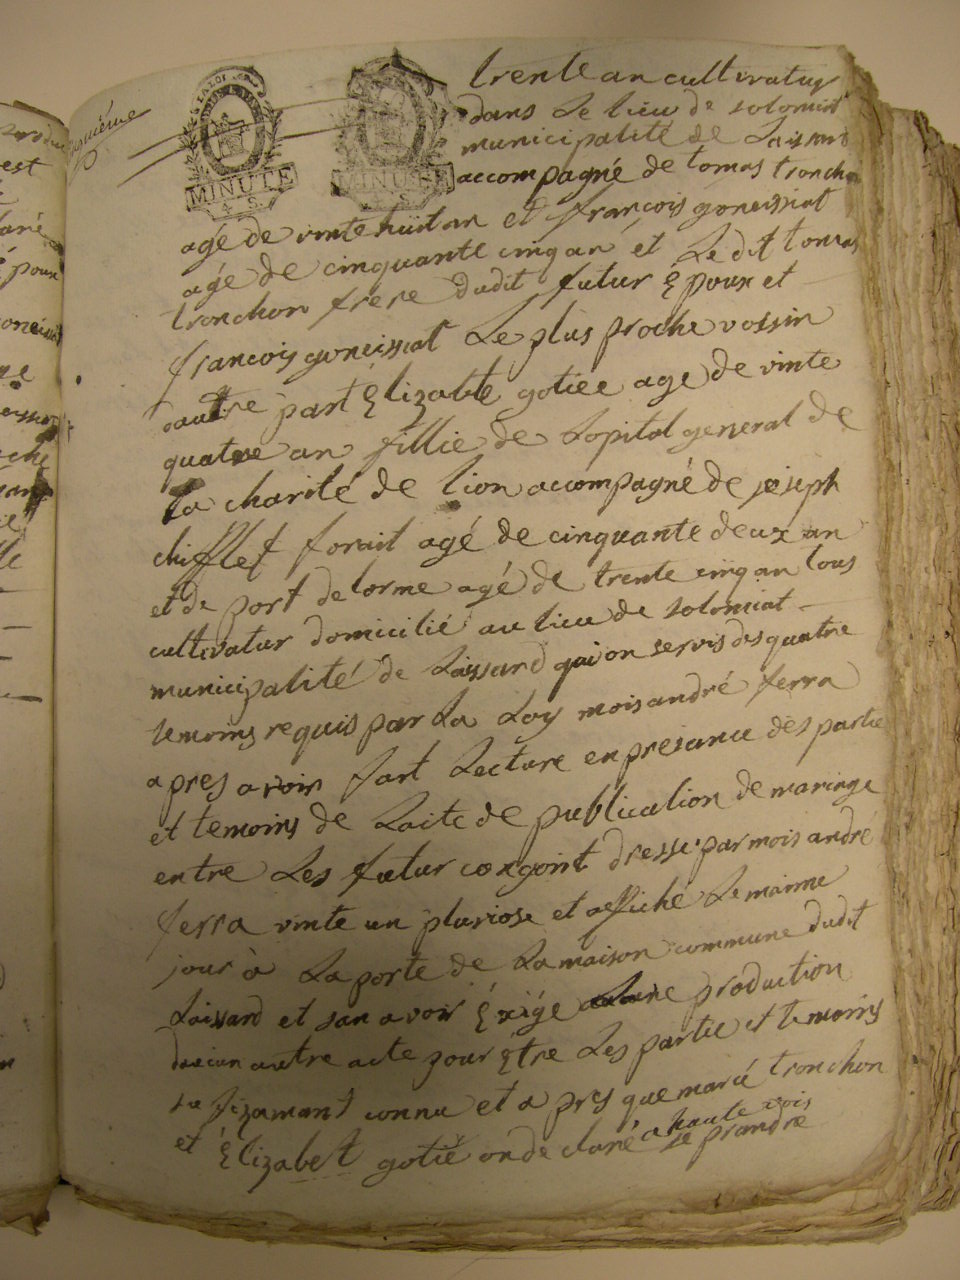 trente an cultivatur
dans Le lieu de solomiat
municipalité de Laissard
MINUTE MINUTE accompagné de tomas tronchon
agé de vinte huit an et françois goneissiat
agé de cinquante cinq an et Le dit tomas
tronchon frere dudit futur Epoux et
françois goneissiat Le plus proche vossin
dautre part Elizabte gotiee age de vinte
quatre an fillie de Lopital general de
La charité de Lion accompagné de joseph
chifflet forait agé de cinquante deux an
et de port delorme agé de trente cinq an tous
cultivatur domicilié au lieu de solomiat
municipalité de Laissard qui on servis des quatre
temoins requis par La Loy mois andré ferra
apres avoir fart Lecture en presance des partie
et temoins de Laite de publication de mariage
entre Les futur congoint dresse par mois andré
ferra vinte un pluviose et affiché Le maime
jour à La porte de La maison commune dudit
Laissard et san avoir Exigé aucune production
daucun autre acte pour Etre Les partie et temoins
sufizamant connu et a pres que marie tronchon
et Elizabet gotié on de claré a haute vois
se prandre